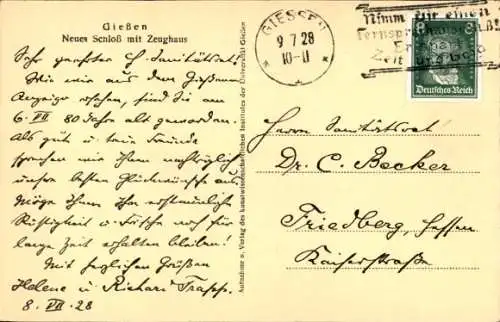 Gießen
Neues Schloß mit Zeughaus
Sehr geehrter H. Sanitätsrat!
Wie wir aus dem Giessener
Anzeiger ersehen, sind Sie am
6. VII 80 Jahre alt geworden.
Als gute u. treue Freunde
sprechen wir Ihnen nachträglich
unsre besten Glückwünsche aus.
Möge Ihnen Ihre erstaunliche
Rüstigkeit u. Frische noch für
lange Zeit erhalten bleiben!
Mit herzlichen Grüßen
Helene u. Richard Trapp.
8. VII. 28
Aufnahme u. Verlag des kunstwissenschaftlichen Institutes der Universität Gießen
GIESSEN
9 7 28
10-11
Nimm Dir einen
Fernsprecher
Zeit und Geld
8 8
Deutsches Reich
Herrn Sanitätsrat
Dr. C. Becker
Friedberg, Hessen
Kaiserstraße